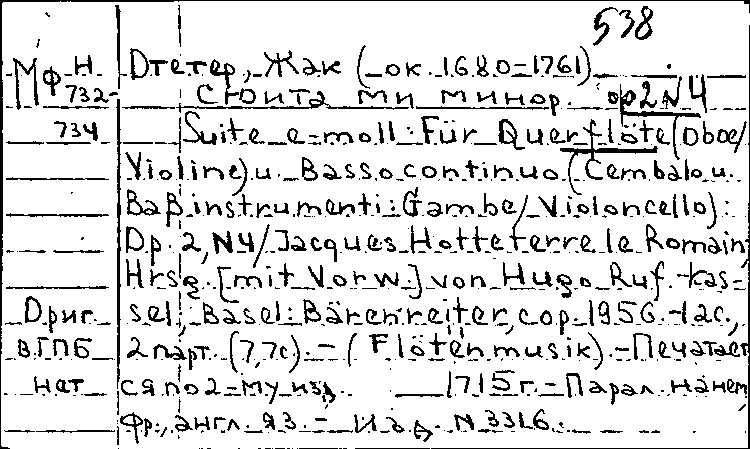 538
МФ Н Отетер, Жак (ок. 1680-1761)
732- Сюита ми минор. op 2 N 4
734 Suite e-moll: Für Querflöte (Oboe/
Violine) u. Basso continuo (Cembalo u.
Baβinstrumenti: Gambe/Violoncello):
Op. 2, N4/Jacques Hotteterre le Romain;
Hrsg. [mit Vorw.] von Hugo Ruf. - Kas-
Ориг. sel; Basel: Bärenreiter, cop. 1956. - 12 с.,
ВГПБ 2 парт. (7,7с). - (Flötenmusik). - Печатает
нет ся по 2-му изд. 1715 г. - Парал. на нем,
фр., англ. яз. - Изд. N 3316.